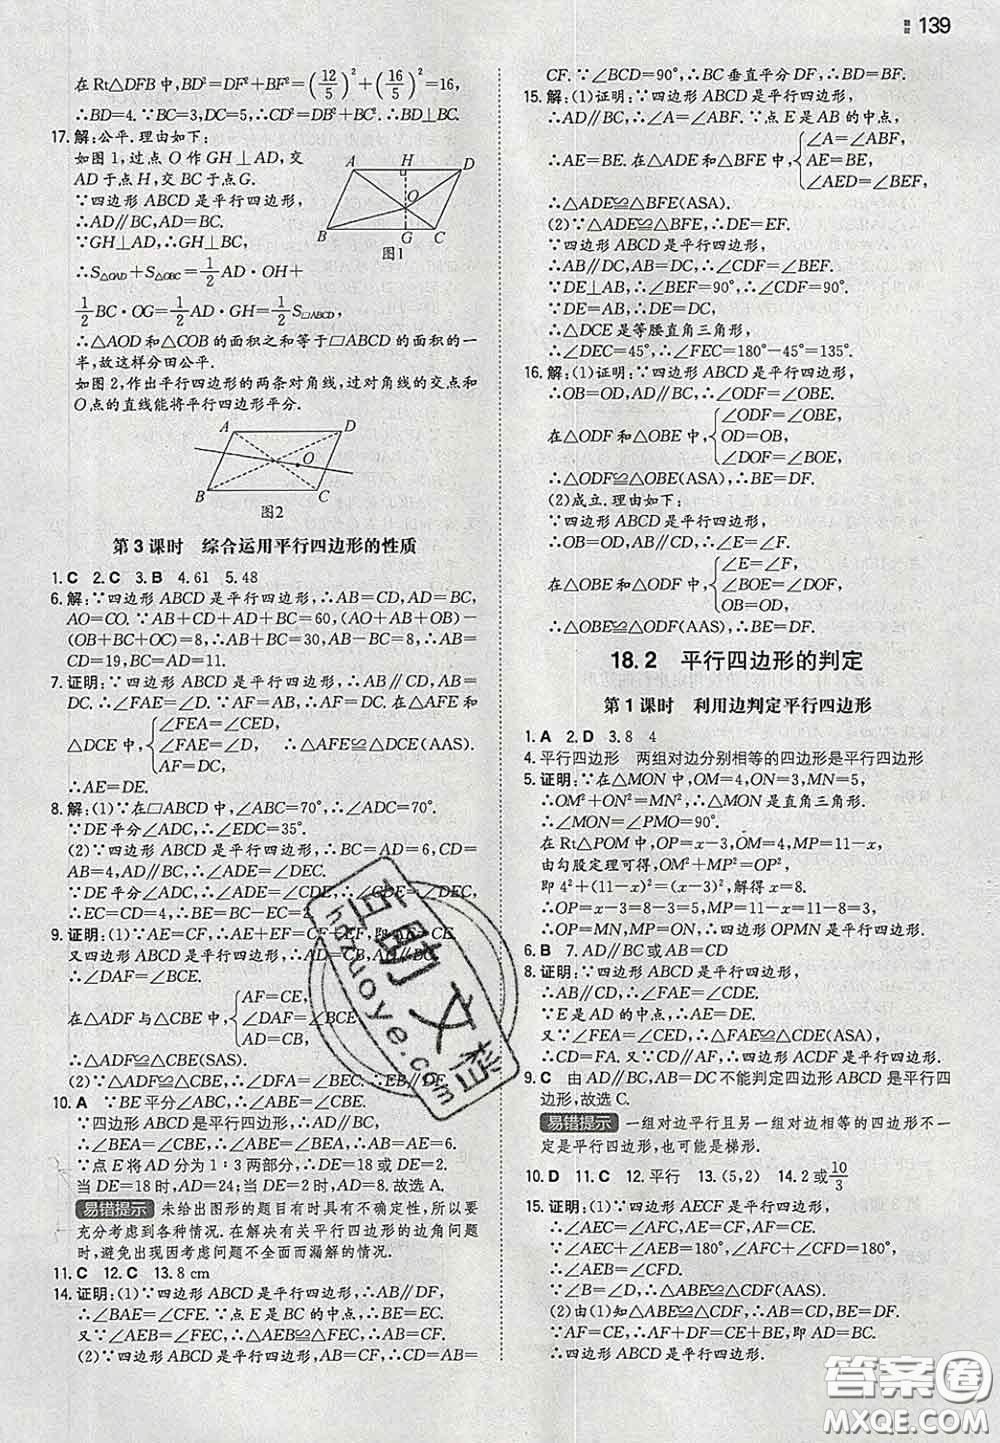 139
在Rt△DFB中,BD²=DF²+BF²=(12/5)²+(16/5)²=16,
∴BD=4.∵BC=3,DC=5,∴CD²=BC²+BD²,∴BD⊥BC.
17.解:公平.理由如下:
如图1,过点O作GH⊥AD,交
AD于点H,交BC于点G.
∵四边形ABCD是平行四边形,
∴AD∥BC,AD=BC.
∵GH⊥AD,∴GH⊥BC,
∴S△OAD+S△OBC=1/2AD·OH+
1/2BC·OG=1/2AD·GH=1/2S□ABCD,
A H D
O
B G C
图1
∴△AOD和△COB的面积之和等于□ABCD的面积的一
半,故这样分田公平.
如图2,作出平行四边形的两条对角线,过对角线的交点和
O点的直线能将平行四边形平分.
A D
O
B C
图2
第3课时 综合运用平行四边形的性质
1.C 2.C 3.B 4.61 5.48
6.解:∵四边形ABCD是平行四边形,∴AB=CD,AD=BC,
AO=CO.∵AB+CD+AD+BC=60,(AO+AB+OB)-
(OB+BC+OC)=8,∴AB+BC=30,AB-BC=8,∴AB=
CD=19,BC=AD=11.
7.证明:∵四边形ABCD是平行四边形,∴AB=CD,
AB∥CD,∴∠FAE=∠D.∵AF=AB,∴AF=CD.在△AFE和
△DCE中,{∠FAE=∠D, ∠AEF=∠CED, AF=CD,
∴△AFE≌△DCE(AAS).
∴AE=DE.
8.解:(1)∵在□ABCD中,∠ABC=70°,∴∠ADC=70°.
∵DE平分∠ADC,∴∠EDC=35°.
(2)∵四边形ABCD是平行四边形,∴BC=AD=6,CD=
AB=4,AD∥BC,∴∠ADE=∠DEC.
∵DE平分∠ADC,∴∠ADE=∠CDE,∴∠CDE=∠DEC,
∴EC=CD=4,∴BE=BC-EC=2
9.证明:(1)∵AE=CF,∴AE+EF=CF+EF,即AF=CE.
又四边形ABCD是平行四边形,∴AD=CB,AD∥BC,
∴∠DAF=∠BCE.
在△ADF与△CBE中,{AF=CE, ∠DAF=∠BCE AD=CB,
∴△ADF≌△CBE(SAS).
(2)∵△ADF≌△CBE,∴∠DFA=∠BEC.∴DF∥EB.
10.A ∵BE平分∠ABC,∴∠ABE=∠CBE.
∵四边形ABCD是平行四边形,∴AD∥BC,
∴∠BEA=∠CBE,∴∠BEA=∠ABE,∴AE=AB=6.
∵点E将AD分为1∶3两部分,∴DE=18或DE=2.
当DE=18时,AD=24;当DE=2时,AD=8.故选A.
易错提示 未给出图形的题目有时具有不确定性,所以要
充分考虑到各种情况.在解决有关平行四边形的边角问题
时,避免出现因考虑问题不全面而漏解的情况.
11.C 12.C 13.8 cm
14.证明:(1)∵四边形ABCD是平行四边形,∴AB∥DF,
∴∠BAE=∠CFE.∵点E是BC的中点,∴BE=EC.
又∵∠AEB=∠FEC,∴△AEB≌△FEC,∴AB=CF.
(2)∵四边形ABCD是平行四边形,AB=CF,∴CD=AB=
CF.∵∠BCD=90°,∴BC垂直平分DF,∴BD=BF.
15.解:(1)证明:∵四边形ABCD是平行四边形,
∴AD∥BC,∴∠A=∠ABF.∵点E是AB的中点,
∴AE=BE.在△ADE和△BFE中,{∠A=∠ABF, AE=BE, ∠AED=∠BEF,
∴△ADE≌△BFE(ASA).
(2)∵△ADE≌△BFE,∴DE=EF.
∵四边形ABCD是平行四边形,
∴AB∥DC,AB=DC,∴∠CDF=∠BEF.
∵DE⊥AB,∴∠BEF=90°,∴∠CDF=90°.
∵DE=AB,∴DE=DC,
∴△DCE是等腰直角三角形,
∴∠DEC=45°,∴∠FEC=180°-45°=135°.
16.解:(1)证明:∵四边形ABCD是平行四边形,
∴OB=OD,AD∥BC,∴∠ODF=∠OBE.
在△ODF和△OBE中,{∠ODF=∠OBE, OD=OB, ∠DOF=∠BOE,
∴△ODF≌△OBE(ASA),∴BE=DF.
(2)成立.理由如下:
∵四边形ABCD是平行四边形,
∴OB=OD,AD∥BC,∴∠E=∠F.
在△OBE和△ODF中,{∠E=∠F, ∠BOE=∠DOF, OB=OD,
∴△OBE≌△ODF(AAS),∴BE=DF.
18.2 平行四边形的判定
第1课时 利用边判定平行四边形
1.A 2.D 3.8 4
4.平行四边形 两组对边分别相等的四边形是平行四边形
5.证明:∵在△MON中,OM=4,ON=3,MN=5,
∴OM²+ON²=MN²,∴△MON是直角三角形,
∴∠MON=∠PMO=90°.
在Rt△POM中,OP=x-3,OM=4,MP=11-x,
由勾股定理可得,OM²+MP²=OP²,
即4²+(11-x)²=(x-3)².解得x=8.
∴OP=x-3=8-3=5,MP=11-x=11-8=3,
∴OP=MN,ON=MP,∴四边形OPMN是平行四边形.
6.B 7.AD∥BC或AB=CD
8.证明:∵四边形ABCD是平行四边形,
∴AB∥CD,∴∠FAE=∠CDE.
∵E是AD的中点,∴AE=DE.
又∵∠FEA=∠CED,∴△FAE≌△CDE(ASA),
∴CD=FA.又∵CD∥AF,∴四边形ACDF是平行四边形.
9.C 由AD∥BC,AB=DC不能判定四边形ABCD是平行四
边形,故选C.
易错提示 一组对边平行且另一组对边相等的四边形不一
定是平行四边形,也可能是梯形.
10.D 11.C 12.平行 13.(5,2) 14.2或10/3
15.证明:(1)∵四边形AECF是平行四边形,
∴∠AEC=∠AFC,AE=CF,AF=CE.
∵∠AEC+∠AEB=180°,∠AFC+∠CFD=180°,
∴∠AEB=∠CFD.
∵∠B=∠D,∴△ABE≌△CDF(AAS).
(2)由(1)知△ABE≌△CDF,∴AB=CD,BE=DF.
∵AF=CE,∴AF+DF=CE+BE,即AD=BC,
∴四边形ABCD是平行四边形.
百助文档
hdzuoye.com
答案圈
MXQE.COM